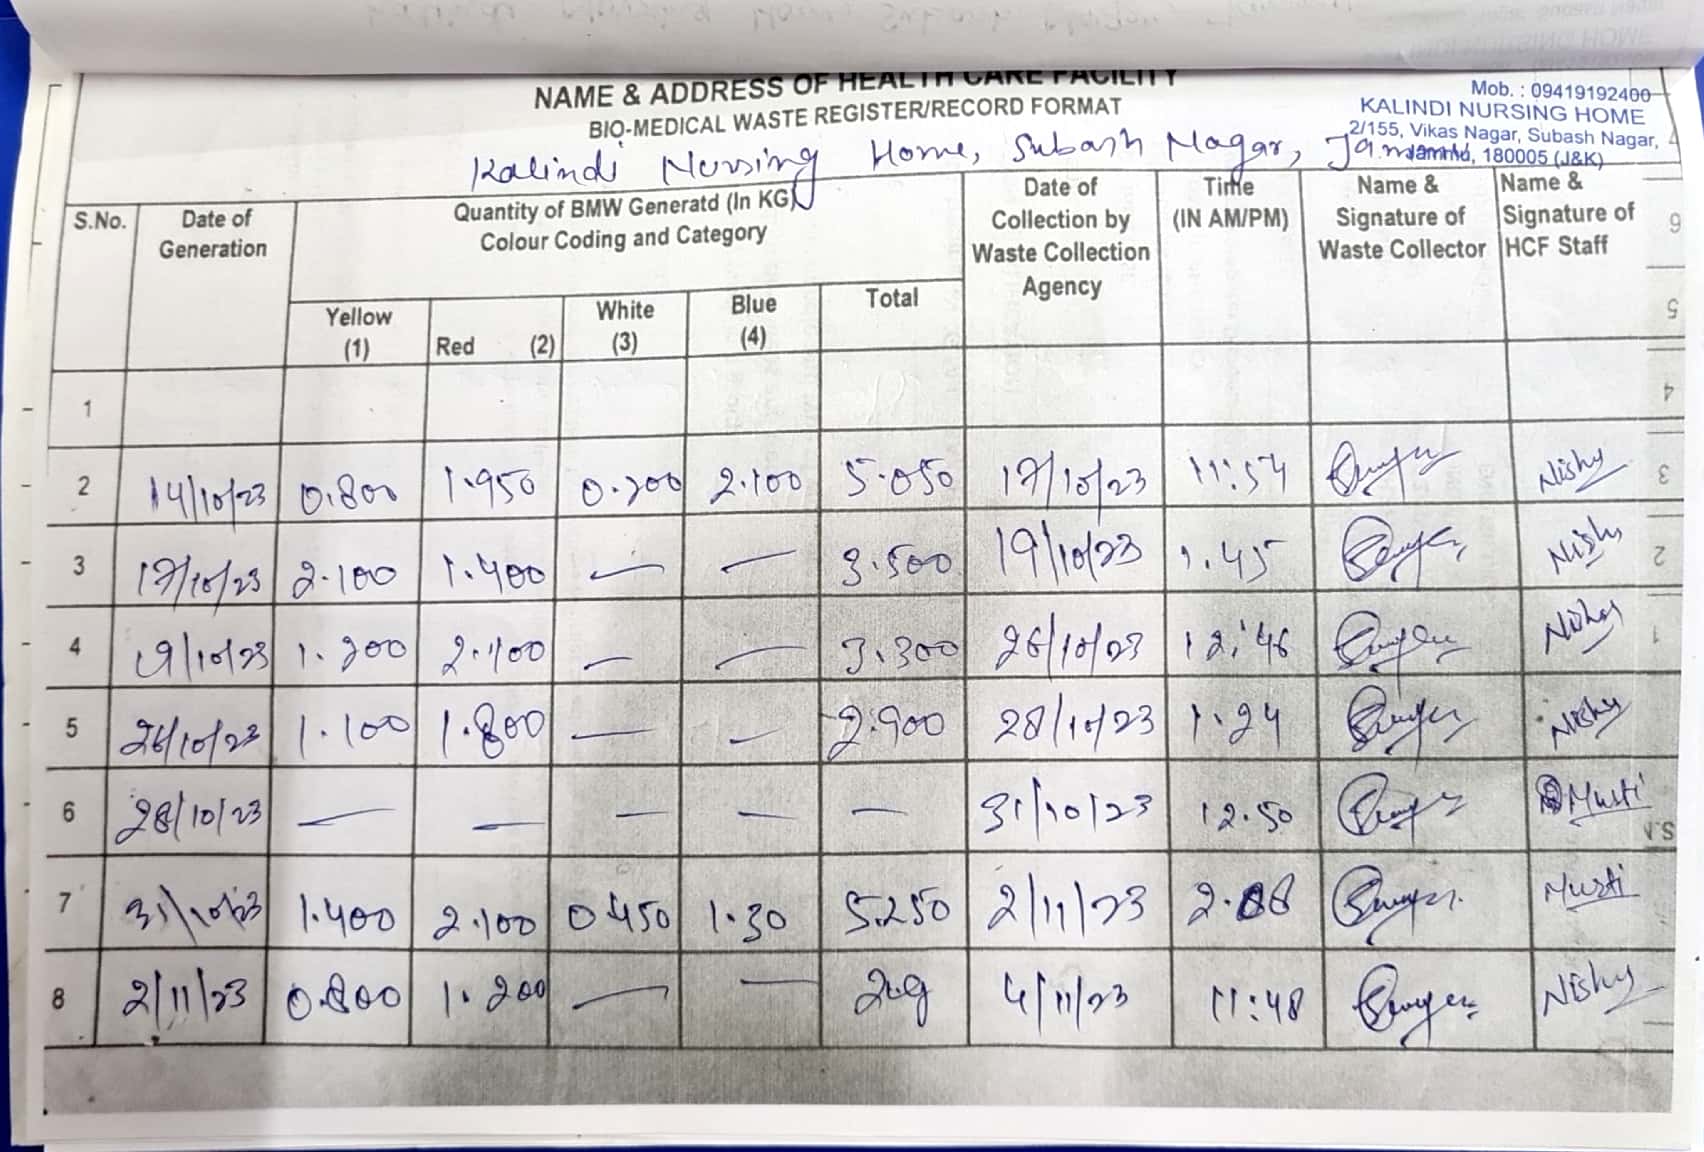 NAME & ADDRESS OF HEALTH CARE FACILITY
BIO-MEDICAL WASTE REGISTER/RECORD FORMAT
Mob. : 09419192400
KALINDI NURSING HOME
2/155, Vikas Nagar, Subash Nagar,
Jammu, 180005 (J&K)
Kalindi Nursing Home, Subash Nagar,
S.No. Date of Generation Quantity of BMW Generatd (In KG) Colour Coding and Category Date of Collection by Waste Collection Agency Time (IN AM/PM) Name & Signature of Waste Collector Name & Signature of HCF Staff
Yellow (1) Red (2) White (3) Blue (4) Total
1
2 14/10/23 0.800 1.950 0.200 2.100 5.050 17/10/23 11:57 Nishy
3 17/10/23 2.100 1.400 — — 3.500 19/10/23 1.45 Nishy
4 19/10/23 1.200 2.100 — — 3.300 26/10/23 12:46 Nishy
5 26/10/23 1.100 1.800 — — 2.900 28/10/23 1.24 Nishy
6 28/10/23 — — — — — 31/10/23 12.50 Musti
7 31/10/23 1.400 2.100 0.450 1.30 5.250 2/11/23 Musti
8 2/11/23 0.800 1.200 — — 4/11/23 11:48 Nishy